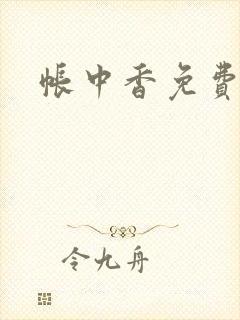 帐中香免費
令九舟